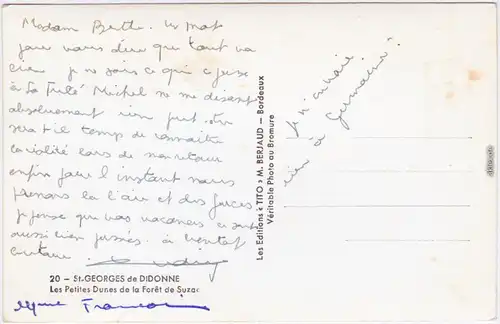 Madam Berthe. un mot
pour vous dire que tout va
bien je ne sais ce qui c passe
à La Michel ne me disant
absolument rien
sera t il temps de connaitre
la réalité lors de mon retour
enfin pour l'instant nous
prenons de l'air et des forces
je pense que vos vacances
aussi bien passées. à bientot
20 — St-GEORGES de DIDONNE
Les Petites Dunes de la Forêt de Suzac
Francois
Les Editions « TITO » M. BERJAUD — Bordeaux
Véritable Photo au Bromure
je n'envoie
rien à Germaine